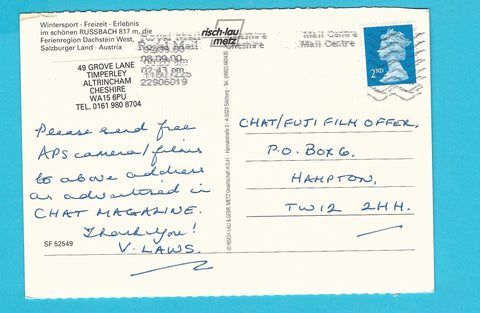 Wintersport - Freizeit - Erlebnis
im schönen RUSSBACH 817 m, die
Ferienregion Dachstein West,
Salzburger Land - Austria
risch-lau
metz
Royal Mail
Cheshire
Mail Centre
Mail Centre
08.09.00
02:43 pm
22906019
2ND
49 GROVE LANE
TIMPERLEY
ALTRINCHAM
CHESHIRE
WA15 6PU
TEL. 0161 980 8704
Please send free
APS camera/films
to above address
as advertised in
CHAT MAGAZINE.
Thank you!
V. LAWS.
SF 52549
© RISCH-LAU & GEBR. METZ Gesellschaft m.b.H.
CHAT/FUJI FILM OFFER,
P.O. BOX 6,
HAMPTON,
TW12 2HH.